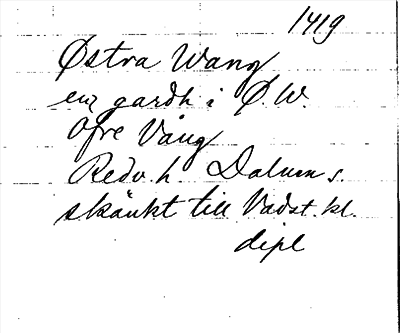 1419
Østra Wang
en gardh i Ø.W.
Øfre Vång
Redv. h. Dalum s.
skänkt till Vadst. kl.
dipl